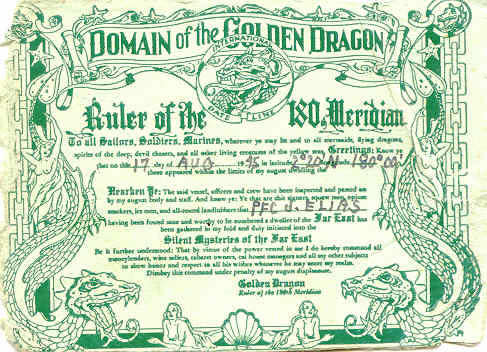 DOMAIN of the GOLDEN DRAGON
INTERNATIONAL
DATE LINE
Ruler of the 180. Meridian
To all Sailors, Soldiers, Marines, wherever ye may be and to all mermaids, flying dragons,
spirits of the deep, devil chasers, and all other living creatures of the yellow seas, Greetings: Know ye
that on this 17 day of AUG 1945 in latitude 2°20'N longitude 180°00'
there appeared within the limits of my august dwelling the
Hearken Ye: The said vessel, officers and crew have been inspected and passed on
by my august body and staff. And know ye: Ye that are chit signers, squaw men, opium
smokers, ice men, and all-round landlubbers that PFC J. ELIAS
having been found sane and worthy to be numbered a dweller of the Far East has
been gathered in my fold and duly initiated into the
Silent Mysteries of the Far East
Be it further understood: That by virtue of the power vested in me I do hereby command all
moneylenders, wine sellers, cabaret owners, managers and all my other subjects
to show honor and respect to all his wishes whenever he may enter my realm.
Disobey this command under penalty of my august displeasure.
Golden Dragon
Ruler of the 180th Meridian